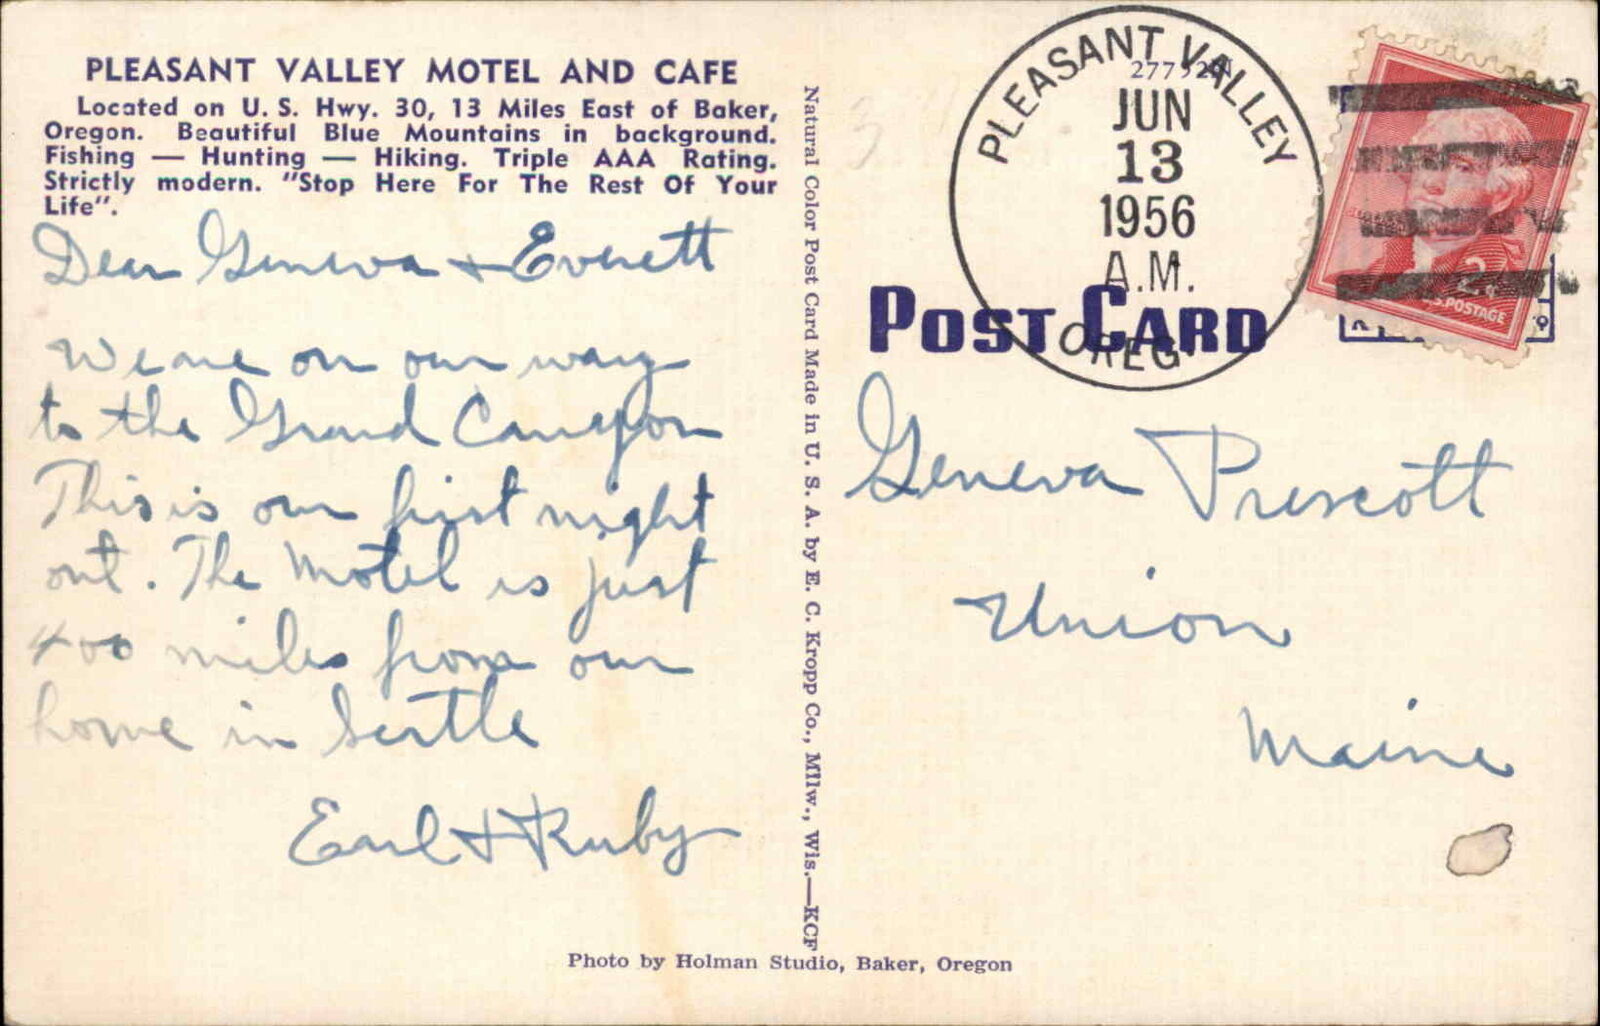 PLEASANT VALLEY MOTEL AND CAFE
Located on U. S. Hwy. 30, 13 Miles East of Baker,
Oregon. Beautiful Blue Mountains in background.
Fishing — Hunting — Hiking. Triple AAA Rating.
Strictly modern. "Stop Here For The Rest Of Your
Life".
Dear Geneva + Everett
We are on our way
to the Grand Canyon
This is our first night
out. The Motel is just
400 miles from our
home in Seattle
Earl + Ruby
Natural Color Post Card Made in U. S. A. by E. C. Kropp Co., Milw., Wis.—KCP
PLEASANT VALLEY
JUN
13
1956
A.M.
OREG.
2¢
U.S. POSTAGE
POST CARD
Geneva Prescott
Union
Maine
Photo by Holman Studio, Baker, Oregon